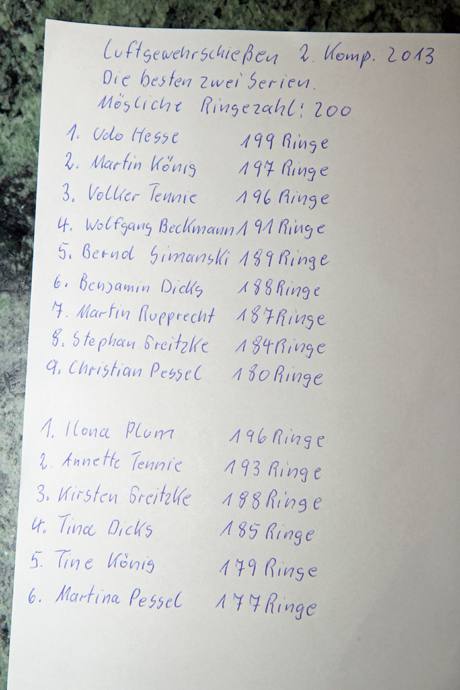 Luftgewehrschießen 2. Komp. 2013
Die besten zwei Serien.
Mögliche Ringezahl: 200
1. Udo Hesse 199 Ringe
2. Martin König 197 Ringe
3. Volker Tennie 196 Ringe
4. Wolfgang Beckmann 191 Ringe
5. Bernd Simanski 189 Ringe
6. Benjamin Dicks 188 Ringe
7. Martin Rupprecht 187 Ringe
8. Stephan Greitzke 184 Ringe
9. Christian Pessel 180 Ringe
1. Ilona Plum 196 Ringe
2. Annette Tennie 193 Ringe
3. Kirsten Greitzke 188 Ringe
4. Tina Dicks 185 Ringe
5. Tine König 179 Ringe
6. Martina Pessel 177 Ringe